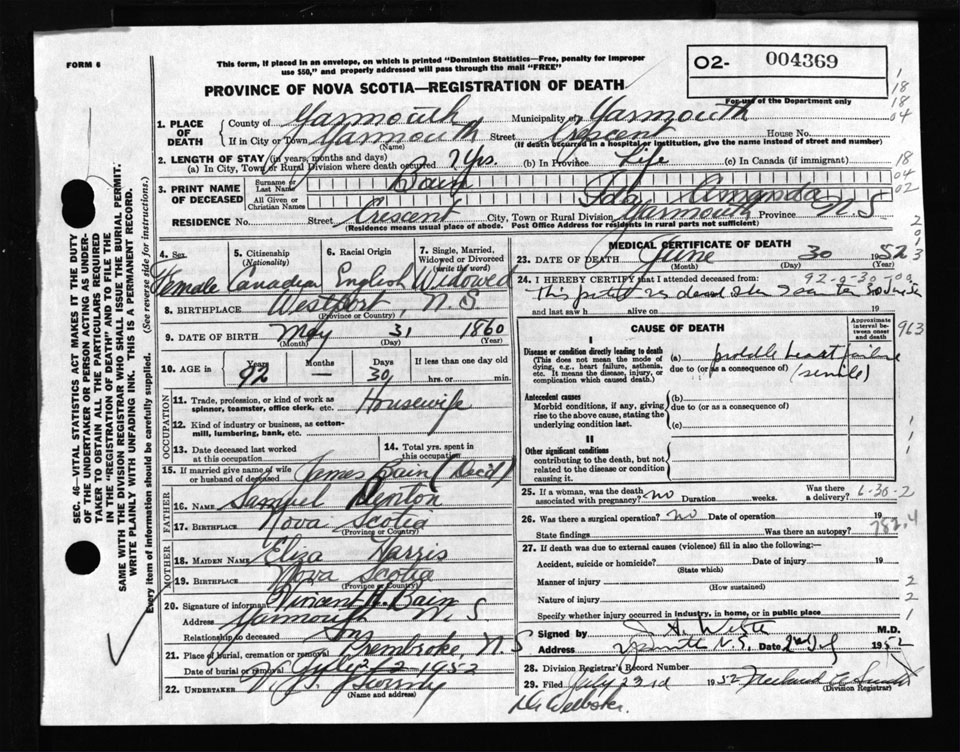 FORM 6
This form, if placed in an envelope, on which is printed "Dominion Statistics—Free, penalty for improper
use $50," and properly addressed will pass through the mail "FREE"
O2- 004369
For use of the Department only
PROVINCE OF NOVA SCOTIA—REGISTRATION OF DEATH
1. PLACE OF DEATH
County of Yarmouth Municipality of Yarmouth
If in City or Town Yarmouth Street Crescent House No.
(Name) (If death occurred in a hospital or institution, give the name instead of street and number)
2. LENGTH OF STAY (in years, months and days)
(a) In City, Town or Rural Division where death occurred 2 yrs. (b) In Province Life (c) In Canada (if immigrant)
3. PRINT NAME OF DECEASED
Surname or Last Name Bain
All Given or Christian Names Ida Amanda
RESIDENCE No. Street Crescent City, Town or Rural Division Yarmouth Province N.S
(Residence means usual place of abode. Post Office Address for residents in rural parts not sufficient)
4. Sex Female
5. Citizenship (Nationality) Canadian
6. Racial Origin English
7. Single, Married, Widowed or Divorced (write the word) Widowed
8. BIRTHPLACE Westport, N.S
(Province or Country)
9. DATE OF BIRTH May 31 1860
(Month) (Day) (Year)
10. AGE in Years 92 Months — Days 30 If less than one day old hrs. or min.
OCCUPATION
11. Trade, profession, or kind of work as spinner, teamster, office clerk, etc. Housewife
12. Kind of industry or business, as cotton-mill, lumbering, bank, etc.
13. Date deceased last worked at this occupation
14. Total yrs. spent in this occupation
15. If married give name of wife or husband of deceased James Bain (Dec'd)
FATHER
16. NAME Samuel Denton
17. BIRTHPLACE Nova Scotia
(Province or Country)
MOTHER
18. MAIDEN NAME Eliza Harris
19. BIRTHPLACE Nova Scotia
(Province or Country)
20. Signature of informant Vincent A. Bain
Address Yarmouth N.S
Relationship to deceased Son
21. Place of burial, cremation or removal Pembroke, N.S
Date of burial or removal July 2 1952
22. UNDERTAKER
(Name and address)
MEDICAL CERTIFICATE OF DEATH
23. DATE OF DEATH June 30 1952
(Month) (Day) (Year)
24. I HEREBY CERTIFY that I attended deceased from:
This patient was dead when I saw her 30 June
and last saw h alive on 19
CAUSE OF DEATH
Approximate interval between onset and death
I
Disease or condition directly leading to death
(This does not mean the mode of dying, e.g., heart failure, asthenia, etc. It means the disease, injury, or complication which caused death.)
(a) probable heart failure
due to (or as a consequence of) (senile)
Antecedent causes
Morbid conditions, if any, giving rise to the above cause, stating the underlying condition last.
(b)
due to (or as a consequence of)
(c)
II
Other significant conditions
contributing to the death, but not related to the disease or condition causing it.
963
25. If a woman, was the death associated with pregnancy? no Duration weeks. Was there a delivery? 6-30-2
26. Was there a surgical operation? no Date of operation 19
State findings Was there an autopsy?
782.4
27. If death was due to external causes (violence) fill in also the following:—
Accident, suicide or homicide? Date of injury 19
(State which)
Manner of injury
(How sustained)
Nature of injury
Specify whether injury occurred in industry, in home, or in public place
Signed by M.D.
Address N.S. Date 1952
28. Division Registrar's Record Number
29. Filed July 23rd 1952
(Division Registrar)
Dr Webster.
SEC. 46—VITAL STATISTICS ACT MAKES IT THE DUTY
OF THE UNDERTAKER OR PERSON ACTING AS UNDER-
TAKER TO OBTAIN ALL THE PARTICULARS REQUIRED
IN THE "REGISTRATION OF DEATH" AND TO FILE THE
SAME WITH THE DIVISION REGISTRAR WHO SHALL ISSUE THE BURIAL PERMIT.
WRITE PLAINLY WITH UNFADING INK. THIS IS A PERMANENT RECORD.
Every item of information should be carefully supplied. (See reverse side for instructions.)